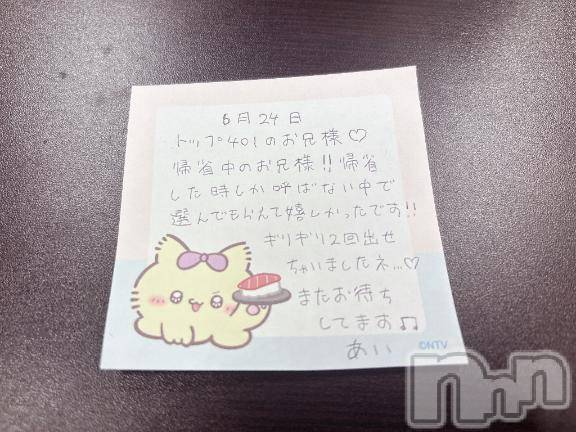 6月24日
トップ401のお兄様♡
帰省中のお兄様!!帰省
した時しか呼ばない中で
選んでもらえて嬉しかったです!!
ギリギリ2回出せ
ちゃいましたネ…♡
またお待ち
してます♫
あい
©NTV
nnn